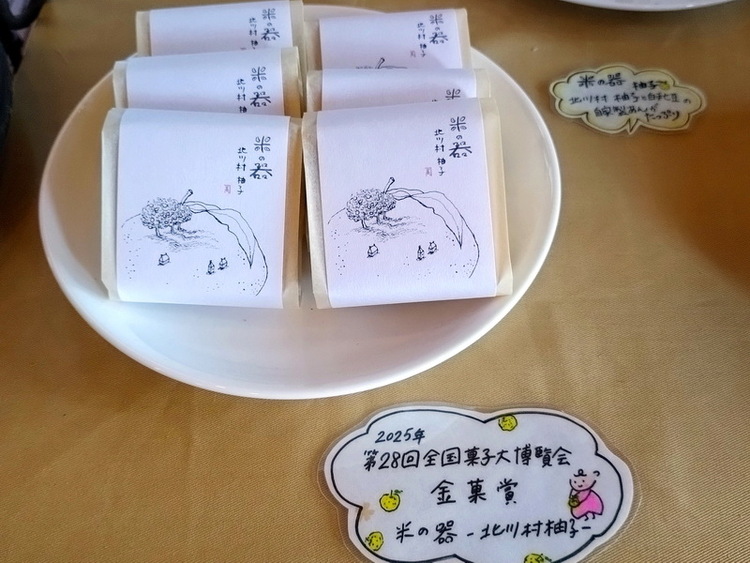 米の器
北川村 柚子
米の器
米の器
北川村 柚子
米の器
米の器
北川村 柚子
米の器
北川村 柚子
米の器 柚子
北川村 柚子と白花豆の
自家製あんが
たっぷり
2025年
第28回全国菓子大博覧会
金菓賞
米の器 -北川村柚子-